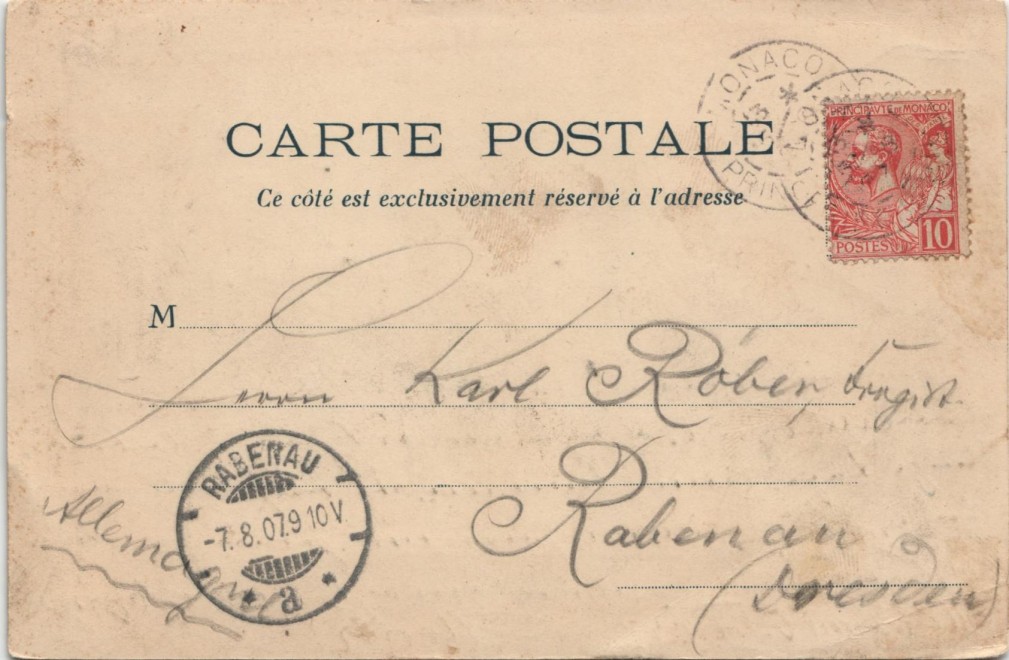 CARTE POSTALE
Ce côté est exclusivement réservé à l'adresse
MONACO
PRINCIPAUTE DE MONACO
POSTES 10
M
Herrn Karl Röber, Drogist
Rabenau
(Dresden)
Allemagne
RABENAU
-7.8.07.9 10V.
* a *